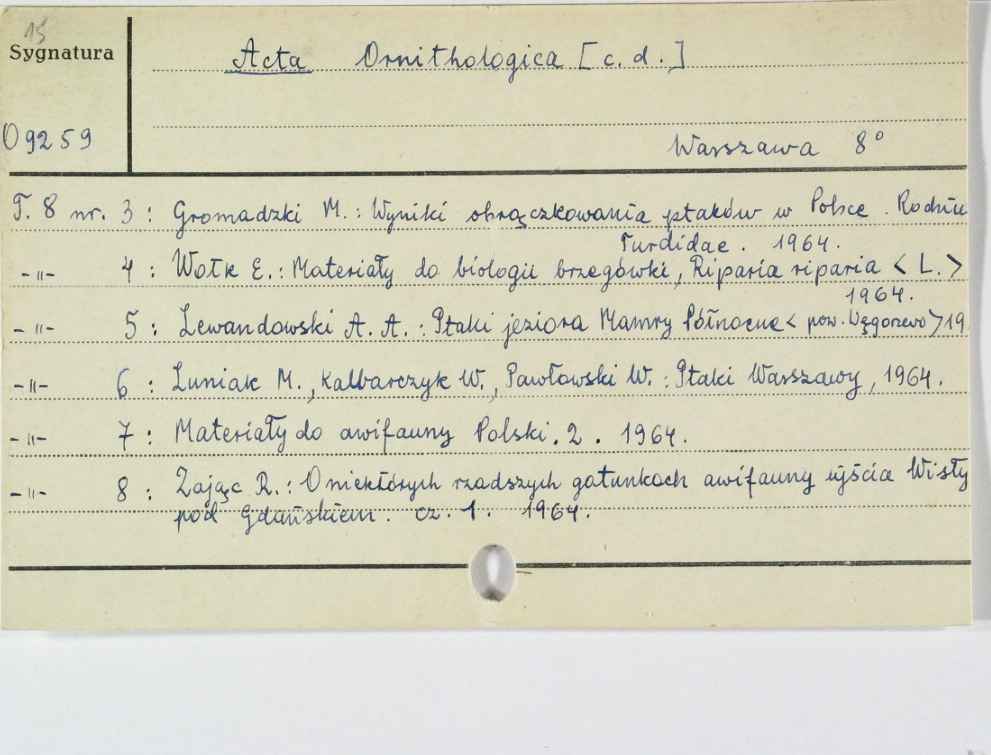 15
Sygnatura
Acta Ornithologica [c.d.]
O 9259
Warszawa 8°
T. 8 nr. 3 : Gromadzki M.: Wyniki obrączkowania ptaków w Polsce. Rodzin
Turdidae. 1964.
-"- 4 : Wołk E.: Materiały do biologii brzegówki, Riparia riparia <L.>
1964.
-"- 5 : Lewandowski A. A.: Ptaki jeziora Mamry Północne <pow. Węgorzewo> 19
-"- 6 : Luniak M., Kalbarczyk W., Pawłowski W.: Ptaki Warszawy, 1964.
-"- 7 : Materiały do awifauny Polski. 2. 1964.
-"- 8 : Zając R.: O niektórych rzadszych gatunkach awifauny ujścia Wisły
pod Gdańskiem. cz. 1. 1964.